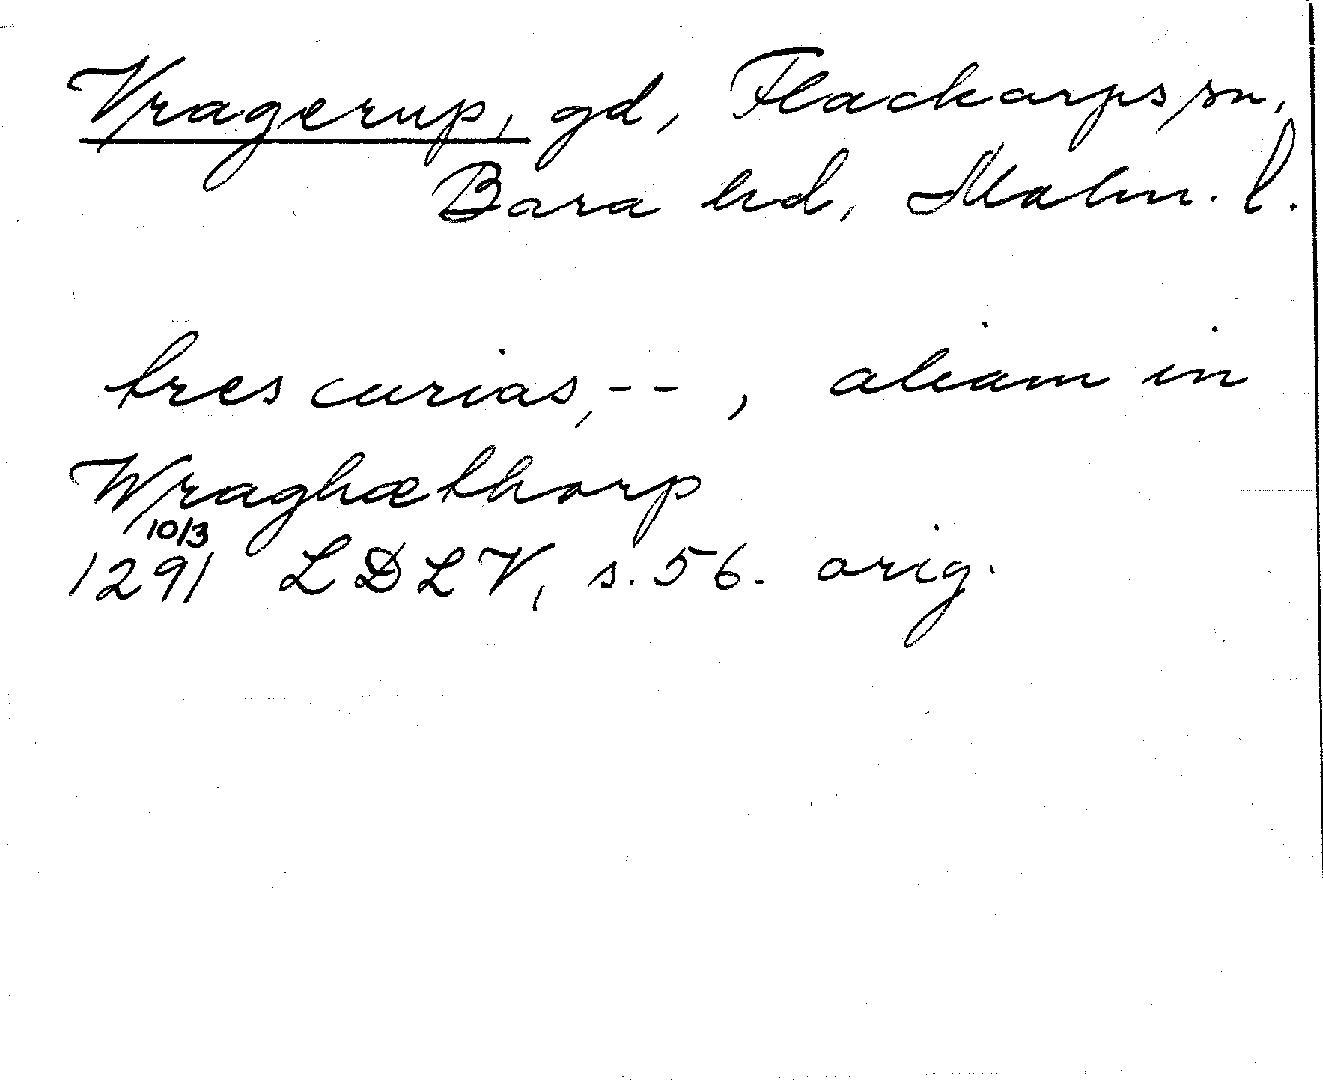 Vragerup, gd, Flackarps sn,
Bara hd, Malm. l.
tres curias, -- , aliam in
Wraghæthorp
10/3
1291 LDLV, s. 56. orig.